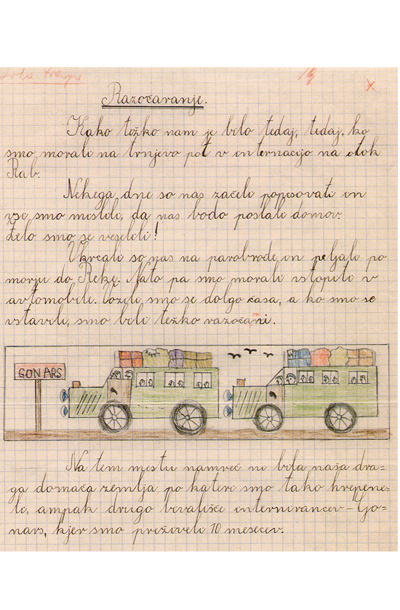 Razočaranje.
Kako težko nam je bilo tedaj, tedaj, ko
smo morali na trnjevo pot v internacijo na otok
Rab.
Nekega dne so nas začeli popisovati in
vse smo mislile, da nas bodo poslale domov.
Zelo smo se veselili!
Vkrcali so nas na parobrode in peljali po
morju do Reke. Nato pa smo morali vstopiti v
avtomobile. Vozili smo se dolgo časa, a ko smo se
ustavili, smo bili težko razočarani.
GONARS
Na tem mestu namreč ni bila naša dra-
ga domača zemlja po kateri smo tako hrepene-
li, ampak drugo bivališče internirancev - Go-
nars, kjer smo preživeli 10 mesecev.